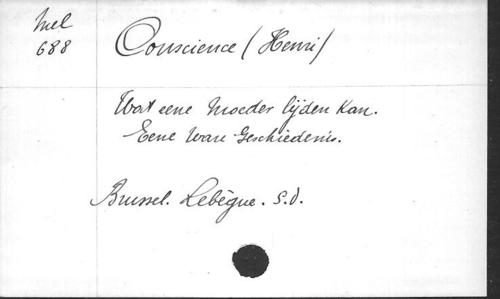 Mel
688
Conscience (Henri)
Wat eene Moeder lijden Kan.
Eene Ware Geschiedenis.
Brussel. Lebègue. S.d.